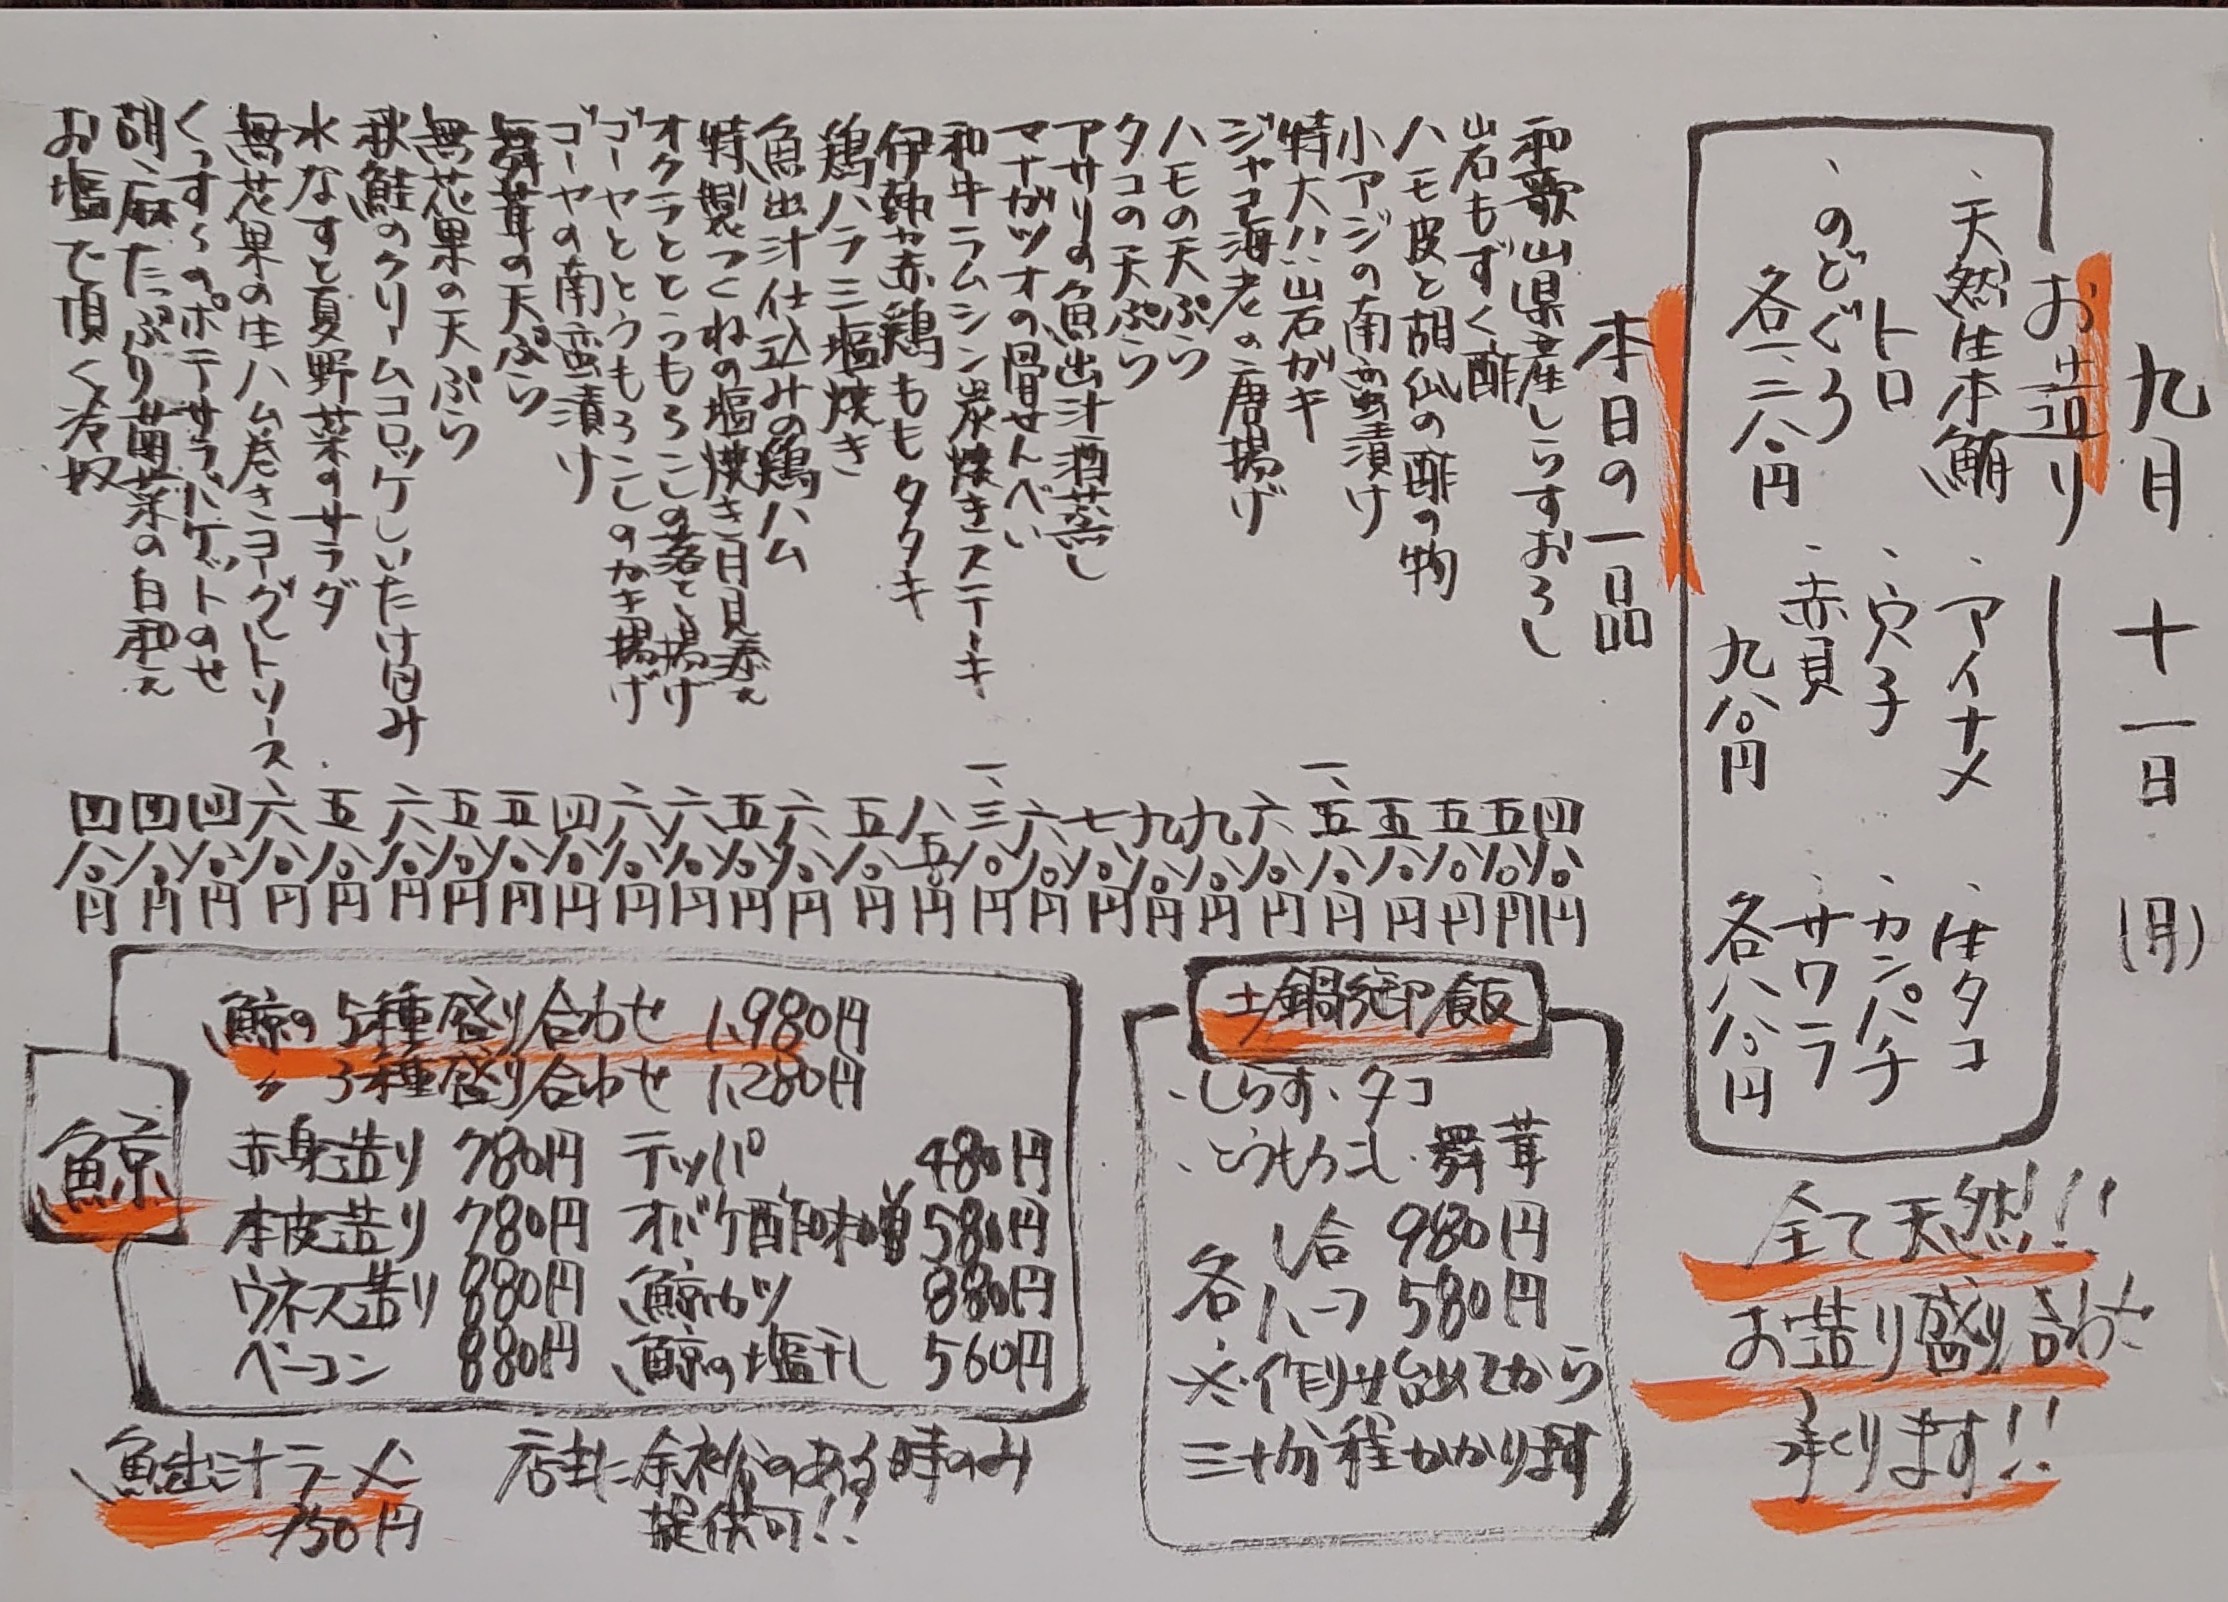 九月十一日(月)
お造り
、天然生本鮪
トロ
、のどぐろ
各一、二八〇円
、アイナメ
、穴子
、赤貝
九八〇円
、生タコ
、カンパチ
、サワラ
各八八〇円
全て天然!!
お造り盛り合わせ
承ります!!
本日の一品
和歌山県産しらすおろし 四八〇円
岩もずく酢 五八〇円
ハモ皮と胡瓜の酢の物 五八〇円
小アジの南蛮漬け 五八〇円
特大!!岩ガキ 一、五八〇円
ジャコ海老の唐揚げ 六八〇円
ハモの天ぷら 九八〇円
タコの天ぷら 九八〇円
アサリの魚出汁酒蒸し 七八〇円
マナガツオの骨せんべい 六八〇円
和牛ラムシン炭焼きステーキ 一、三八〇円
伊勢赤鶏ももタタキ 八五〇円
鶏ハラミ塩焼き 五八〇円
魚出汁仕込みの鶏ハム 六八〇円
特製つくねの塩焼き月見添え 五八〇円
オクラととうもろこしの落とし揚げ 六八〇円
ゴーヤととうもろこしのかき揚げ 六八〇円
ゴーヤの南蛮漬け 四八〇円
舞茸の天ぷら 五八〇円
無花果の天ぷら 五八〇円
秋鮭のクリームコロッケしいたけ包み 六八〇円
水なすと夏野菜のサラダ 五八〇円
無花果の生ハム巻きヨーグルトソース 六八〇円
くっすんのポテサラバケットのせ 四八〇円
胡麻たっぷり菌菜の白和え 四八〇円
お塩で頂く冷奴 四八〇円
土鍋御飯
、しらす、タコ
、とうもろこし、舞茸
各
1合 980円
ハーフ 580円
※作りせ出てから
三十分程かかります
鯨
鯨の5種盛り合わせ 1,980円
〃3種盛り合わせ 1,280円
赤身造り 780円 テッパ 480円
本皮造り 780円 オバケ酢味噌 580円
ウネス造り 880円 鯨カツ 880円
ベーコン 880円 鯨の塩干し 560円
魚出汁ラーメン
750円
店主に余裕のある時のみ
提供可!!